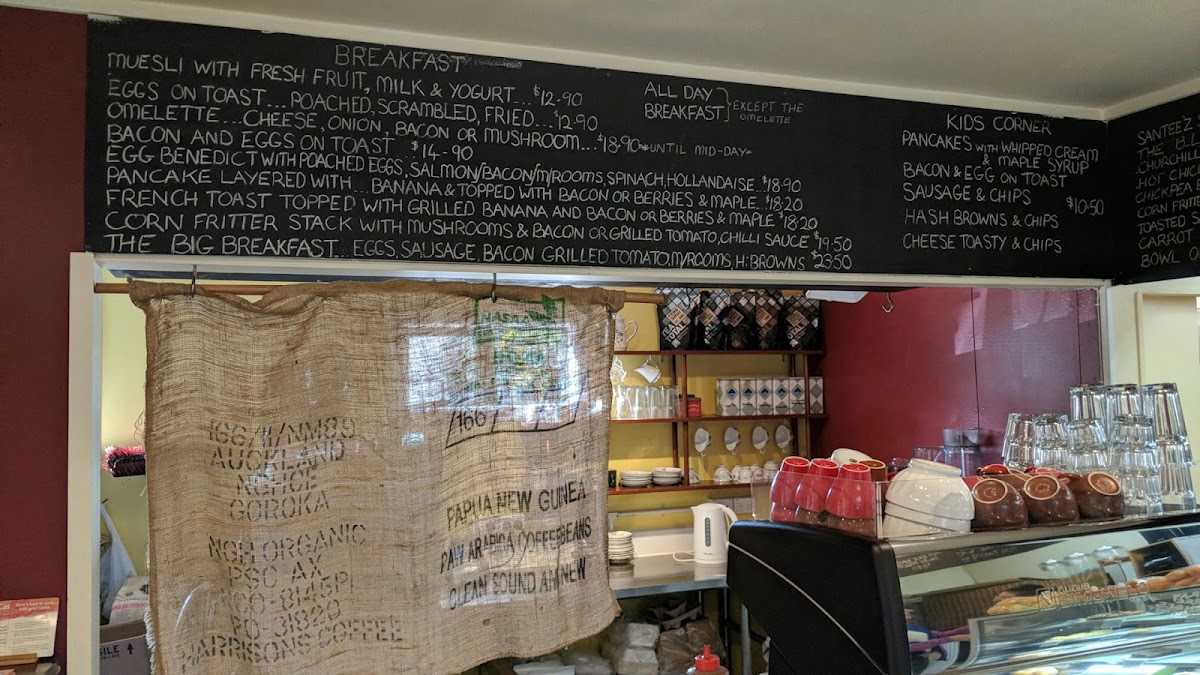 BREAKFAST
MUESLI WITH FRESH FRUIT, MILK & YOGURT...$12-90
EGGS ON TOAST...POACHED, SCRAMBLED, FRIED...$12-90
OMELETTE...CHEESE, ONION, BACON OR MUSHROOM...$18-90 *UNTIL MID-DAY*
BACON AND EGGS ON TOAST $14-90
EGG BENEDICT WITH POACHED EGGS, SALMON/BACON/M/ROOMS, SPINACH, HOLLANDAISE..$18-90
PANCAKE LAYERED WITH...BANANA & TOPPED WITH BACON OR BERRIES & MAPLE..$18-20
FRENCH TOAST TOPPED WITH GRILLED BANANA AND BACON OR BERRIES & MAPLE $18-20
CORN FRITTER STACK WITH MUSHROOMS & BACON OR GRILLED TOMATO, CHILLI SAUCE $19-50
THE BIG BREAKFAST...EGGS, SAUSAGE, BACON GRILLED TOMATO, M/ROOMS, H/BROWNS $23-50
ALL DAY
BREAKFAST} EXCEPT THE
OMELETTE
KIDS CORNER
PANCAKES WITH WHIPPED CREAM
& MAPLE SYRUP
BACON & EGG ON TOAST
SAUSAGE & CHIPS $10-50
HASH BROWNS & CHIPS
CHEESE TOASTY & CHIPS
SANTEE'Z
THE B.L
CHURCHILL
HOT CHIC
CHICKPEA
CORN FRITT
TOASTED S
CARROT
BOWL O
166/11/NM89
AUCKLAND
NGHCE
GOROKA
NGH ORGANIC
PSC AX
PO-31820
HARRISONS COFFEE
166
PAPUA NEW GUINEA
RAW ARABICA COFFEEBEANS
CLEAN SOUND AND NEW